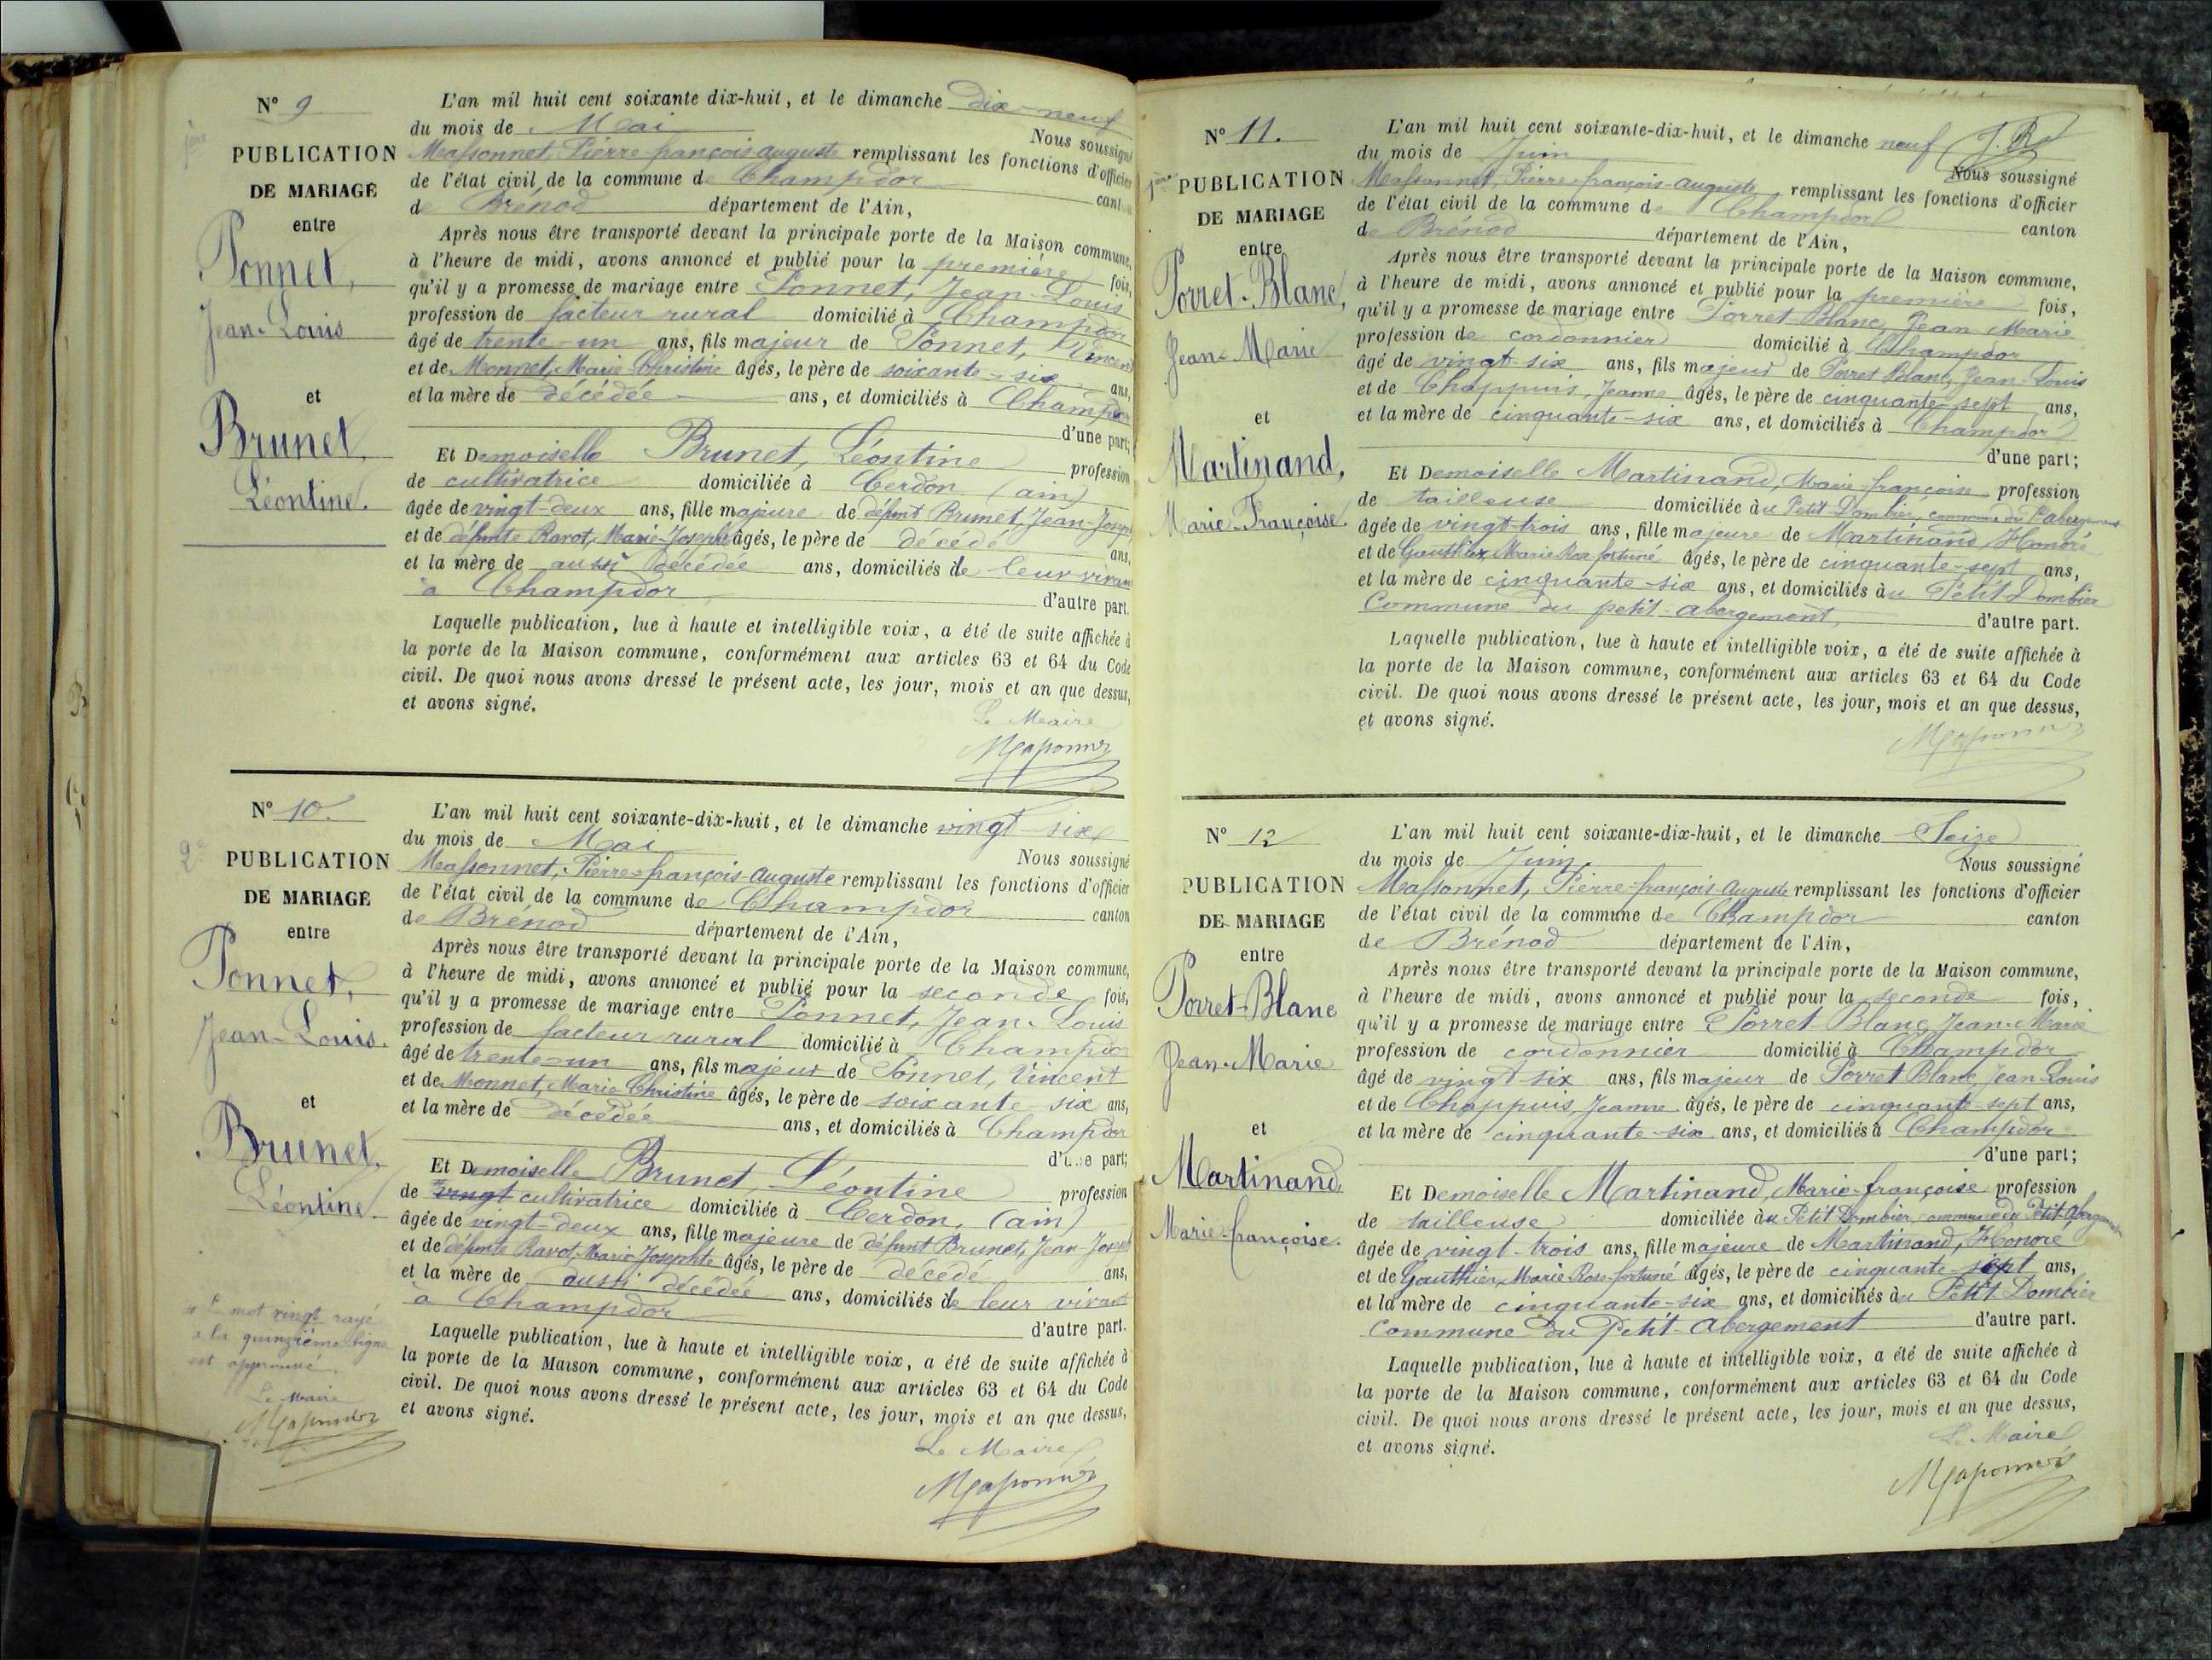 N° 9
1ère
PUBLICATION
DE MARIAGE
entre
Ponnet,
Jean-Louis
et
Brunet,
Léontine.
L'an mil huit cent soixante dix-huit, et le dimanche dix-neuf
du mois de Mai Nous soussigné
Massonnet, Pierre-françois-auguste remplissant les fonctions d'officier
de l'état civil de la commune de Champdor
de Brénod département de l'Ain,
Après nous être transporté devant la principale porte de la Maison commune,
à l'heure de midi, avons annoncé et publié pour la première fois,
qu'il y a promesse de mariage entre Ponnet, Jean-Louis
profession de facteur rural domicilié à Champdor
âgé de trente-un ans, fils majeur de Ponnet, Vincent
et de Monnet, Marie-Christine âgés, le père de soixante-six ans,
et la mère de décédée ans, et domiciliés à Champdor
d'une part;
Et Demoiselle Brunet, Léontine profession
de cultivatrice domiciliée à Cerdon (ain)
âgée de vingt-deux ans, fille majeure de défunt Brunet, Jean-Joseph
et de défunte Ravot, Marie-Josephte âgés, le père de décédé ans,
et la mère de aussi décédée ans, domiciliés de leur vivant
à Champdor d'autre part.
Laquelle publication, lue à haute et intelligible voix, a été de suite affichée à
la porte de la Maison commune, conformément aux articles 63 et 64 du Code
civil. De quoi nous avons dressé le présent acte, les jour, mois et an que dessus,
et avons signé.
Le Maire
Massonnet
N° 10.
2e
PUBLICATION
DE MARIAGE
entre
Ponnet,
Jean-Louis.
et
Brunet,
Léontine
Le mot vingt rayé
à la quinzième ligne
est approuvé.
Le Maire
Massonnet
L'an mil huit cent soixante-dix-huit, et le dimanche vingt-six
du mois de Mai Nous soussigné
Massonnet, Pierre-françois-auguste remplissant les fonctions d'officier
de l'état civil de la commune de Champdor canton
de Brénod département de l'Ain,
Après nous être transporté devant la principale porte de la Maison commune,
à l'heure de midi, avons annoncé et publié pour la seconde fois,
qu'il y a promesse de mariage entre Ponnet, Jean-Louis
profession de facteur rural domicilié à Champdor
âgé de trente-un ans, fils majeur de Ponnet, Vincent
et de Monnet, Marie Christine âgés, le père de soixante-six ans,
et la mère de décédée ans, et domiciliés à Champdor
d'une part;
Et Demoiselle Brunet, Léontine profession
de vingt cultivatrice domiciliée à Cerdon, (ain)
âgée de vingt-deux ans, fille majeure de défunt Brunet, Jean-Joseph
et de défunte Ravot, Marie Josephte âgés, le père de décédé ans,
et la mère de aussi décédée ans, domiciliés de leur vivant
à Champdor d'autre part.
Laquelle publication, lue à haute et intelligible voix, a été de suite affichée à
la porte de la Maison commune, conformément aux articles 63 et 64 du Code
civil. De quoi nous avons dressé le présent acte, les jour, mois et an que dessus,
et avons signé.
Le Maire
Massonnet
N° 11.
1ère PUBLICATION
DE MARIAGE
entre
Porret-Blanc,
Jean-Marie
et
Martinand,
Marie-Françoise.
L'an mil huit cent soixante-dix-huit, et le dimanche neuf
du mois de Juin Nous soussigné
Massonnet, Pierre-françois-auguste remplissant les fonctions d'officier
de l'état civil de la commune de Champdor canton
de Brénod département de l'Ain,
Après nous être transporté devant la principale porte de la Maison commune,
à l'heure de midi, avons annoncé et publié pour la première fois,
qu'il y a promesse de mariage entre Porret-Blanc, Jean Marie
profession de cordonnier domicilié à Champdor
âgé de vingt-six ans, fils majeur de Porret Blanc, Jean-Louis
et de Chappuis, Jeanne âgés, le père de cinquante-sept ans,
et la mère de cinquante-six ans, et domiciliés à Champdor
d'une part;
Et Demoiselle Martinand, Marie-françoise profession
de tailleuse domiciliée au Petit-Dombier, commune du
âgée de vingt-trois ans, fille majeure de Martinand, Honoré
et de Gauthier, Marie Rose fortuné âgés, le père de cinquante-sept ans,
et la mère de cinquante-six ans, et domiciliés au Petit Dombier
Commune du petit-abergement d'autre part.
Laquelle publication, lue à haute et intelligible voix, a été de suite affichée à
la porte de la Maison commune, conformément aux articles 63 et 64 du Code
civil. De quoi nous avons dressé le présent acte, les jour, mois et an que dessus,
et avons signé.
Massonnet
N° 12
PUBLICATION
DE MARIAGE
entre
Porret-Blanc
Jean-Marie
et
Martinand,
Marie-françoise.
L'an mil huit cent soixante-dix-huit, et le dimanche Seize
du mois de Juin Nous soussigné
Massonnet, Pierre-françois-Auguste remplissant les fonctions d'officier
de l'état civil de la commune de Champdor canton
de Brénod département de l'Ain,
Après nous être transporté devant la principale porte de la Maison commune,
à l'heure de midi, avons annoncé et publié pour la seconde fois,
qu'il y a promesse de mariage entre Porret-Blanc, Jean-Marie
profession de cordonnier domicilié à Champdor
âgé de vingt-six ans, fils majeur de Porret Blanc, Jean Louis
et de Chappuis, Jeanne âgés, le père de cinquante-sept ans,
et la mère de cinquante-six ans, et domiciliés à Champdor
d'une part;
Et Demoiselle Martinand, Marie-françoise profession
de tailleuse domiciliée au Petit Dombier, commune du Petit-Abergement
âgée de vingt-trois ans, fille majeure de Martinand, Honoré
et de Gauthier, Marie Rose-fortuné âgés, le père de cinquante-sept ans,
et la mère de cinquante-six ans, et domiciliés au Petit Dombier
Commune du Petit-Abergement d'autre part.
Laquelle publication, lue à haute et intelligible voix, a été de suite affichée à
la porte de la Maison commune, conformément aux articles 63 et 64 du Code
civil. De quoi nous avons dressé le présent acte, les jour, mois et an que dessus,
et avons signé.
Le Maire
Massonnet